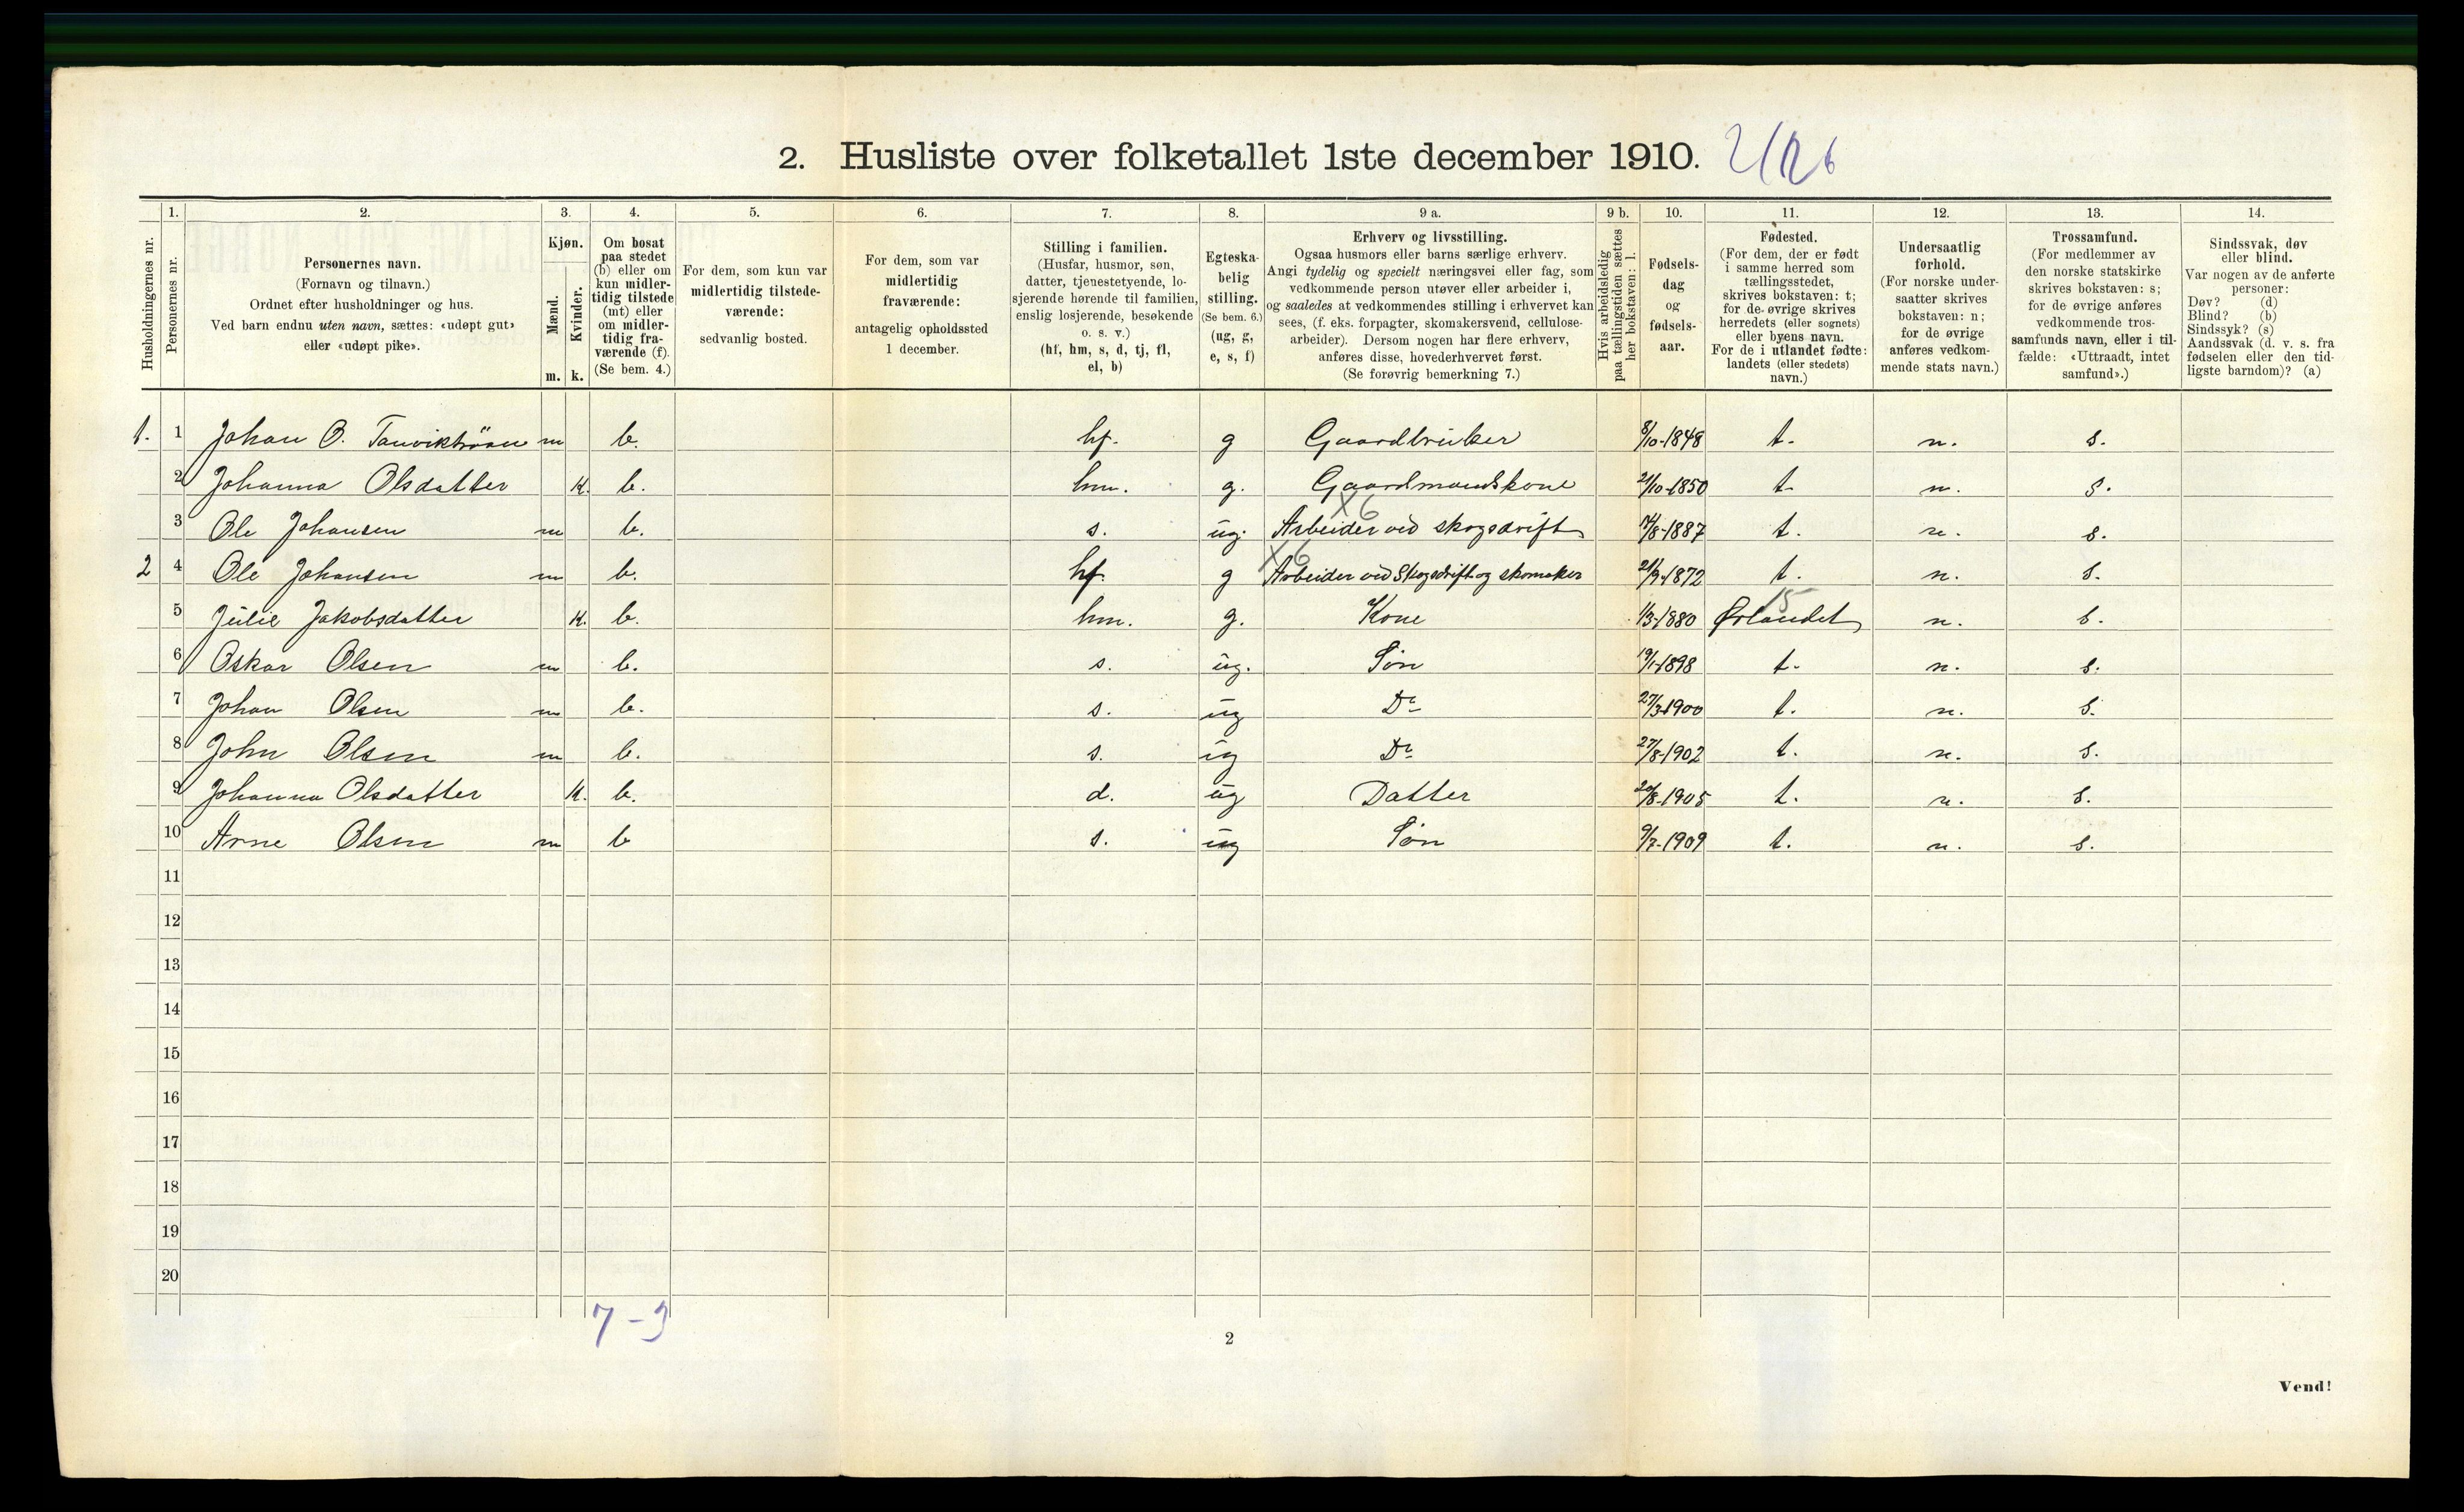 2. Husliste over folketallet 1ste december 1910.
1. 2. 3. 4. 5. 6. 7. 8. 9 a. 9 b. 10. 11. 12. 13. 14.
Husholdningernes nr.
Personernes nr.
Personernes navn.
(Fornavn og tilnavn.)
Ordnet efter husholdninger og hus.
Ved barn endnu uten navn, sættes: «udøpt gut»
eller «udøpt pike».
Kjøn.
Mænd.
Kvinder.
m. k.
Om bosat
paa stedet
(b) eller om
kun midler-
tidig tilstede
(mt) eller
om midler-
tidig fra-
værende (f).
(Se bem. 4.)
For dem, som kun var
midlertidig tilstede-
værende:
sedvanlig bosted.
For dem, som var
midlertidig
fraværende:
antagelig opholdssted
1 december.
Stilling i familien.
(Husfar, husmor, søn,
datter, tjenestetyende, lo-
sjerende hørende til familien,
enslig losjerende, besøkende
o. s. v.)
(hf, hm, s, d, tj, fl,
el, b)
Egteska-
belig
stilling.
(Se bem. 6.)
(ug, g,
e, s, f)
Erhverv og livsstilling.
Ogsaa husmors eller barns særlige erhverv.
Angi tydelig og specielt næringsvei eller fag, som
vedkommende person utøver eller arbeider i,
og saaledes at vedkommendes stilling i erhvervet kan
sees, (f. eks. forpagter, skomakersvend, cellulose-
arbeider). Dersom nogen har flere erhverv,
anføres disse, hovederhvervet først.
(Se forøvrig bemerkning 7.)
Hvis arbeidsledig
paa tællingstiden sættes
her bokstaven: l.
Fødsels-
dag
og
fødsels-
aar.
Fødested.
(For dem, der er født
i samme herred som
tællingsstedet,
skrives bokstaven: t;
for de øvrige skrives
herredets (eller sognets)
eller byens navn.
For de i utlandet fødte:
landets (eller stedets)
navn.)
Undersaatlig
forhold.
(For norske under-
saatter skrives
bokstaven: n;
for de øvrige
anføres vedkom-
mende stats navn.)
Trossamfund.
(For medlemmer av
den norske statskirke
skrives bokstaven: s;
for de øvrige anføres
vedkommende tros-
samfunds navn, eller i til-
fælde: «Uttraadt, intet
samfund».)
Sindssvak, døv
eller blind.
Var nogen av de anførte
personer:
Døv? (d)
Blind? (b)
Sindssyk? (s)
Aandssvak (d. v. s. fra
fødselen eller den tid-
ligste barndom)? (a)
1. 1 Johan O. m b. hf. g Gaardbruker 8/10-1848 t. n. s.
2 Johanna Olsdatter k. b. hm. g. Gaardmandskone 21/10-1850 t. n. s.
X6
3 Ole Johansen m b. s. ug. Arbeider ved skogsdrift 14/8-1887 t. n. s.
X6
2 4 Ole Johansen m b. hf. g Arbeider ved Skogsdrift og skomaker 21/9-1872 t. n. s.
15
5 Julie Jakobsdatter k. b. hm. g. Kone 1/3-1880 Ørlandet n. s.
6 Oskar Olsen m b. s. ug. Søn 19/1-1898 t. n. s.
7 Johan Olsen m b. s. ug Do 27/3-1900 t. n. s.
8 John Olsen m b. s. ug Do 27/8-1902 t. n. s.
9 Johanna Olsdatter k. b. d. ug Datter 20/8-1905 t. n. s.
10 Arne Olsen m b s. ug Søn 9/7-1909 t. n. s.
11
12
13
14
15
16
17
18
19
20
7-3
2
Vend!